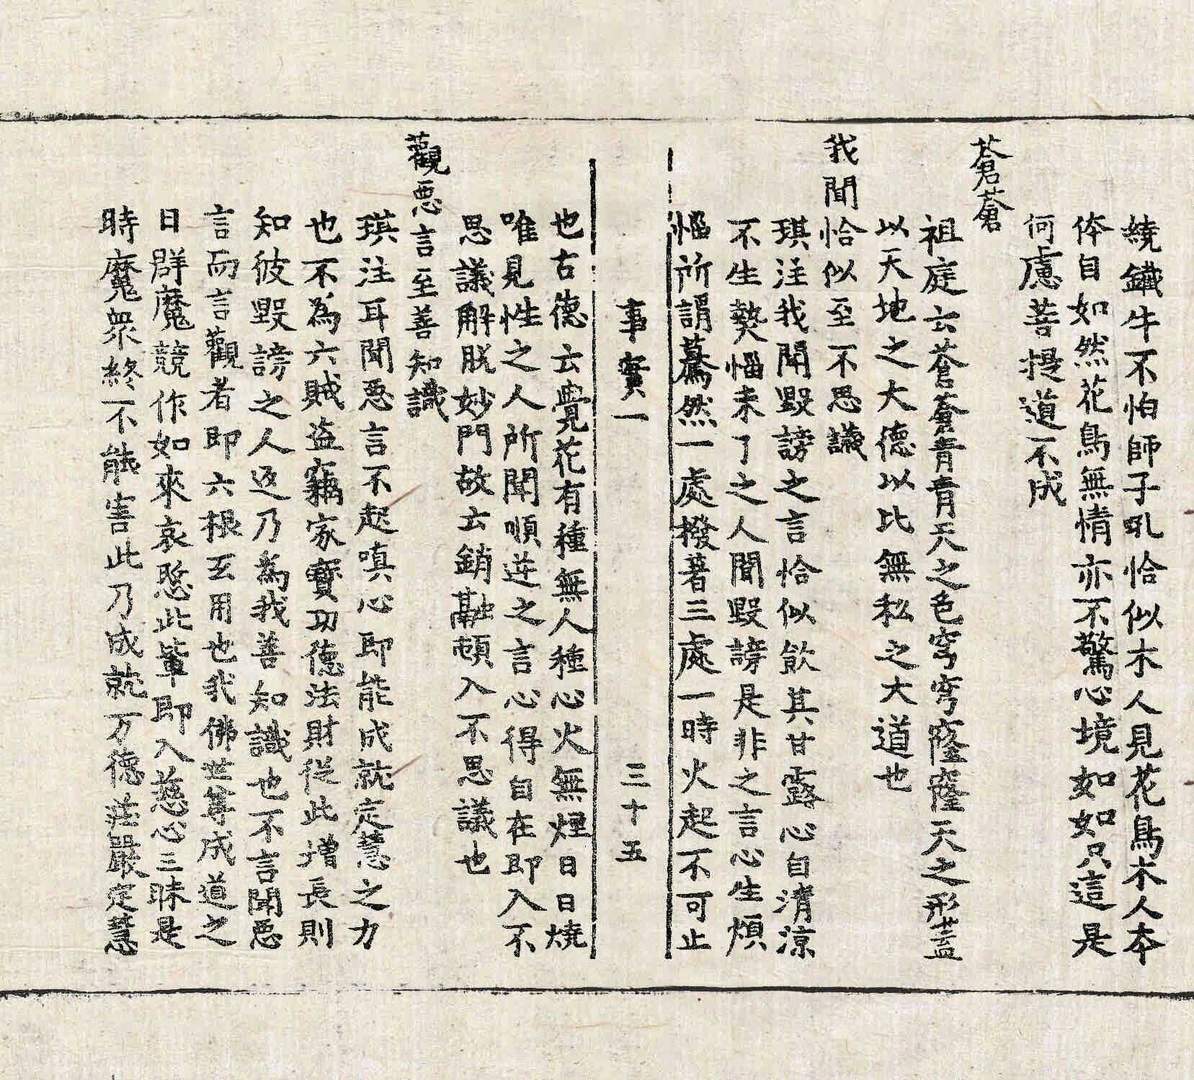 繞鐵牛不怕師子吼恰似木人見花鳥木人本
体自如然花鳥無情亦不驚心境如如只這是
何慮菩提道不成
蒼蒼
祖庭云蒼蒼青青天之色穹穹窿窿天之形蓋
以天地之大德以比無私之大道也
我聞恰似至不思議
琪注我聞毀謗之言恰似飲其甘露心自清涼
不生熱惱未了之人聞毀謗是非之言心生煩
惱所謂驀然一處撥著三處一時火起不可止
事實一 三十五
也古德云覺花有種無人種心火無煙日日燒
唯見性之人所聞順逆之言心得自在即入不
思議解脱妙門故云銷融頓入不思議也
觀惡言至善知識
琪注耳聞惡言不起嗔心即能成就定慧之力
也不為六賊盗竊家寶功德法財從此增長則
知彼毀謗之人返乃為我善知識也不言聞惡
言而言觀者即六根互用也我佛世尊成道之
日群魔競作如來哀愍此輩即入慈心三昧是
時魔衆終不能害此乃成就万德莊嚴定慧